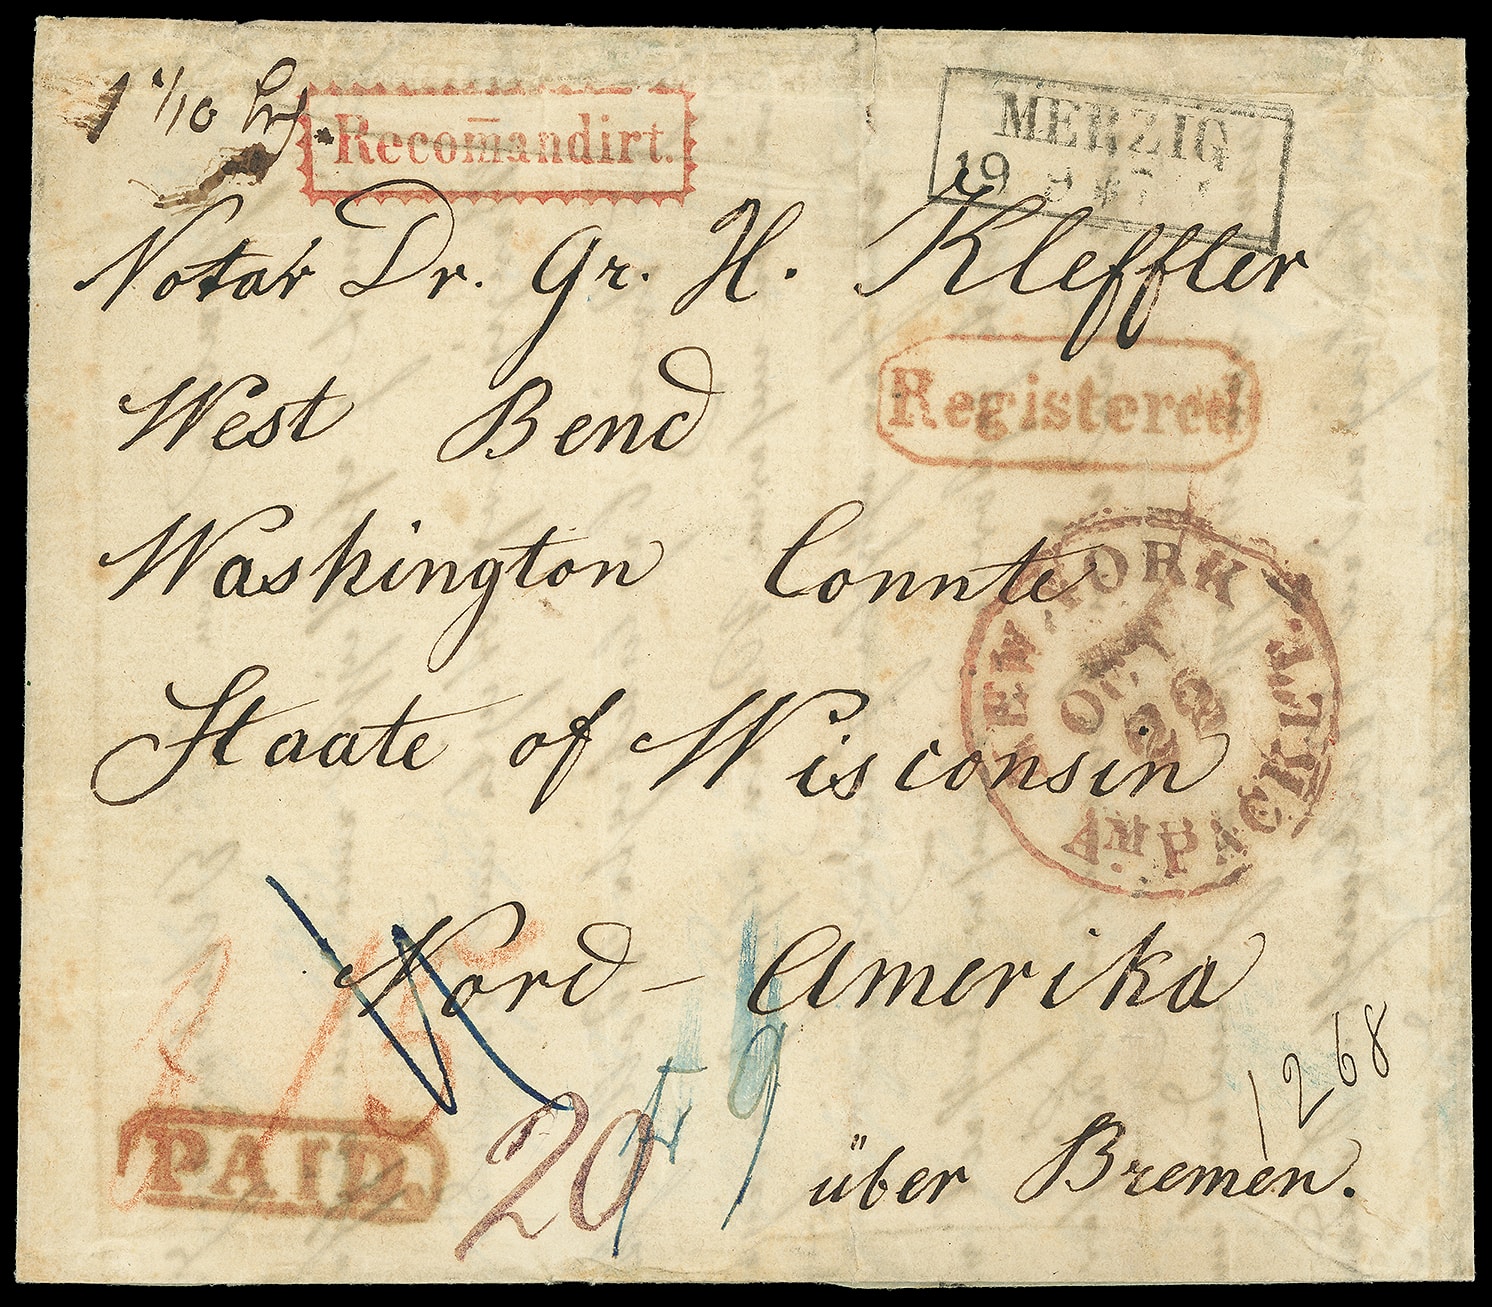 1 1/10
Recom̄andirt.
MERZIG
19 9 *
Notar Dr. Gr. H. Kleffler
Registered
West Bend
Washington Connte
NEW YORK
OCT
22
AM. PACKET.
Staate of Wisconsin
Nord-Amerika
f 15
1268
PAID.
20
über Bremen.